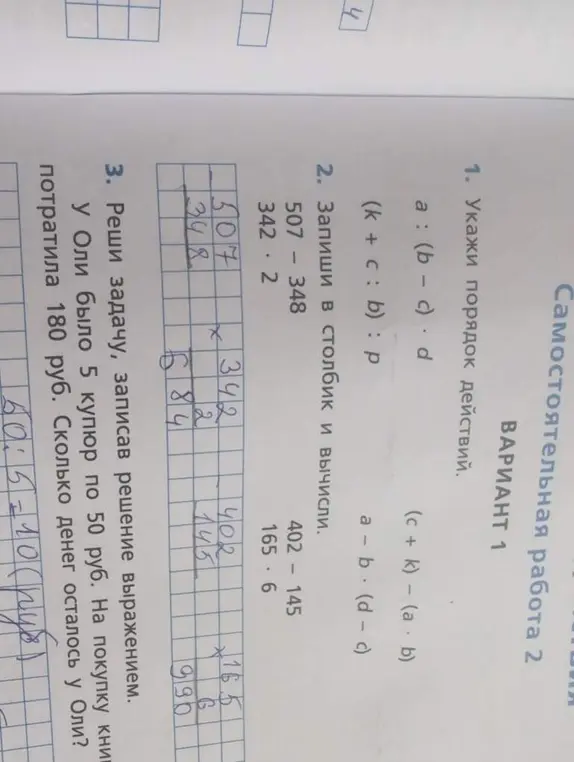 4
Самостоятельная работа 2
ВАРИАНТ 1
1. Укажи порядок действий.
a : (b – c) · d (c + k) – (a · b)
(k + c : b) : p a – b · (d – c)
2. Запиши в столбик и вычисли.
507 – 348 402 – 145
342 · 2 165 · 6
507 × 342 - 402 × 165
348 2 145 6
684 990
3. Реши задачу, записав решение выражением.
У Оли было 5 купюр по 50 руб. На покупку
потратила 180 руб. Сколько денег осталось у Оли?
50:5=10(руб)